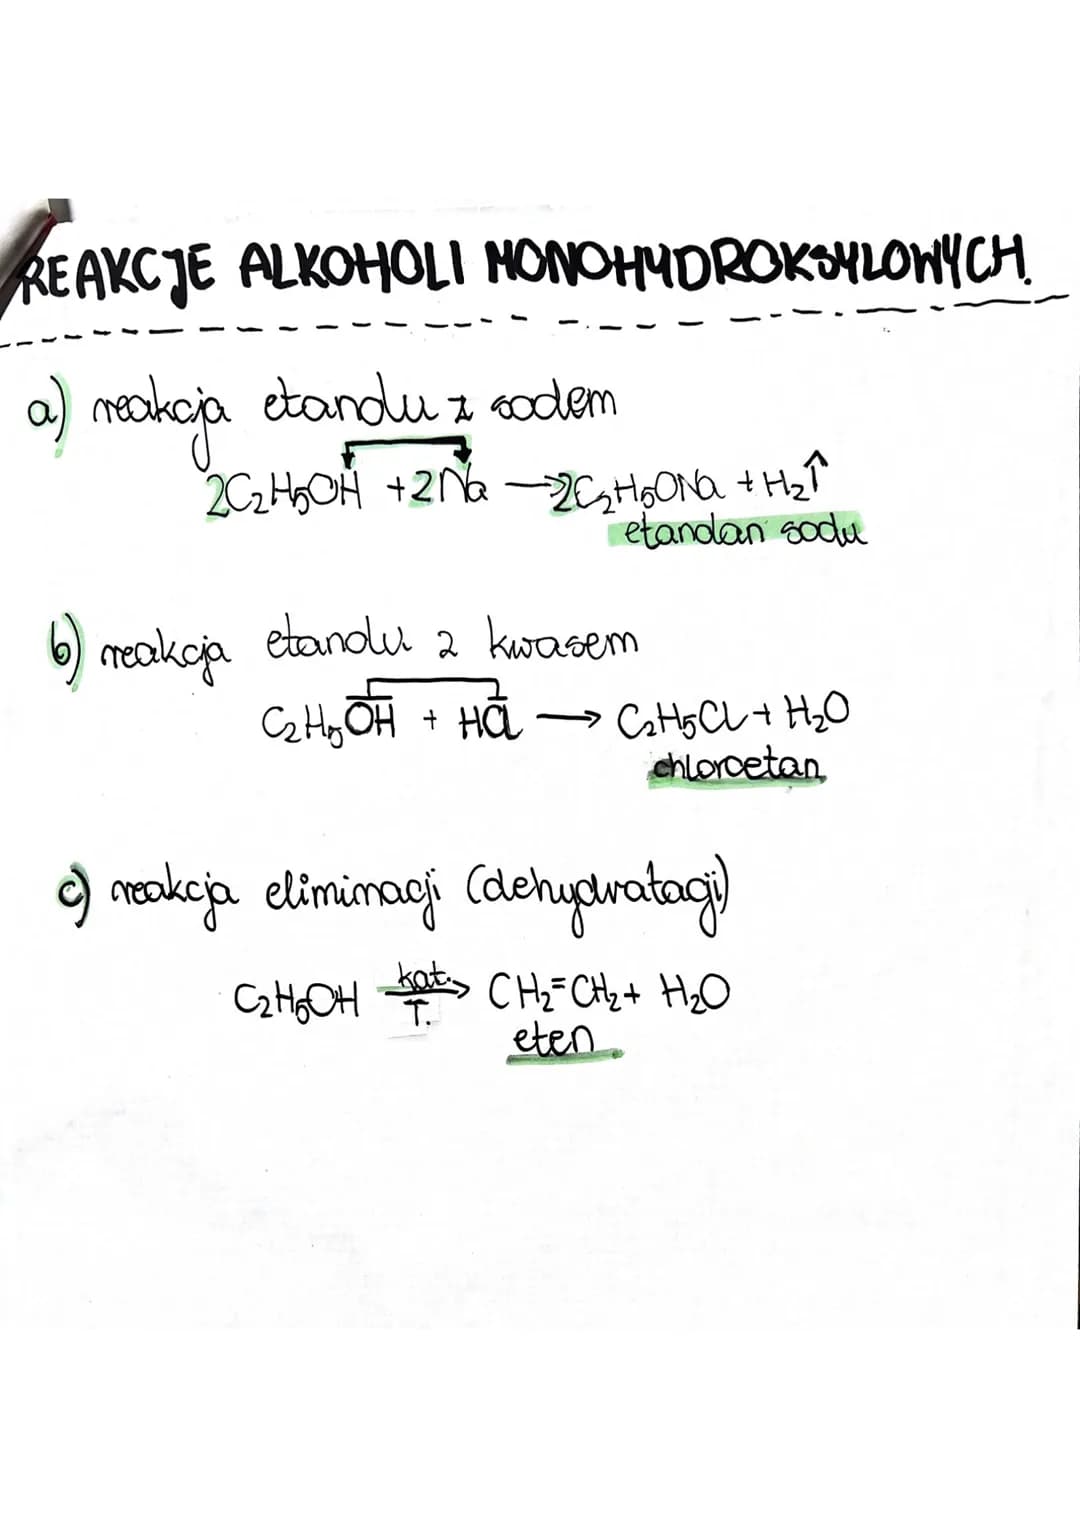 REAKCJE ALKOHOLI MONOHYDROKSYLOWYCH.
a) reakcja etanolu z sodem
2C₂H₅OH + 2Na → 2C₂H₅ONa + H₂↑
etanolan sodu
b) reakcja etanolu z kwasem
C₂H₅OH + HCl → C₂H₅Cl + H₂O
chloroetan
c) reakcja eliminacji (dehydratacji)
C₂H₅OH kat. T. → CH₂=CH₂ + H₂O
eten